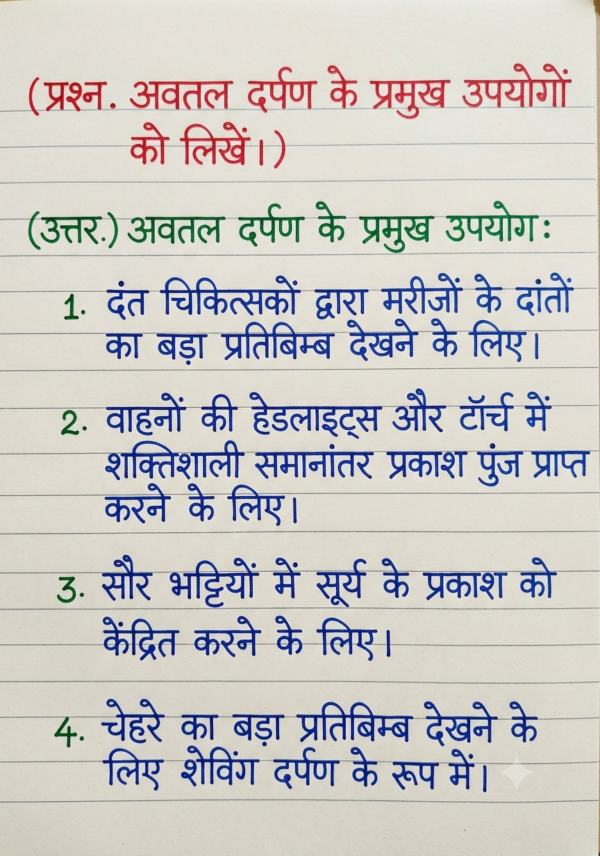 (प्रश्न. अवतल दर्पण के प्रमुख उपयोगों
को लिखें।)
(उत्तर.) अवतल दर्पण के प्रमुख उपयोग:
1. दंत चिकित्सकों द्वारा मरीजों के दांतों
का बड़ा प्रतिबिम्ब देखने के लिए।
2. वाहनों की हेडलाइट्स और टॉर्च में
शक्तिशाली समानांतर प्रकाश पुंज प्राप्त
करने के लिए।
3. सौर भट्टियों में सूर्य के प्रकाश को
केंद्रित करने के लिए।
4. चेहरे का बड़ा प्रतिबिम्ब देखने के
लिए शेविंग दर्पण के रूप में।